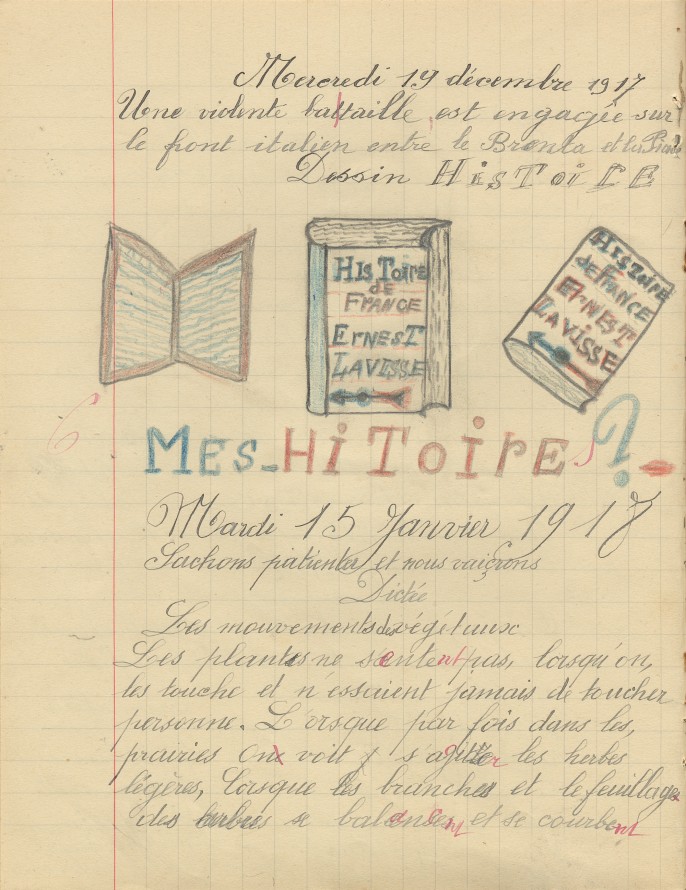 Mercredi 19 décembre 1917
Une violente battaille, est engagée sur
le front italien entre le Brenta et la Piave
Dessin HisToirE
HisToire
de
FRANCE
ERNEST
LAVISSE
HISTOIRE
de FRANCE
ERNEST
LAVISSE
6
MES-HiToirEs ?-
Mardi 15 Janvier 1918
Sachons patienter et nous vaiçrons
Dictée
Les mouvements des végétaux
Les plantes ne sentent pas, lorsqu'on,
les touche et n'essaient jamais de toucher
personne. L'orsque par fois dans les,
prairies on voit s'agiter les herbes
légères, lorsque les branches et le feuillage
des arbres se balancent et se courbent